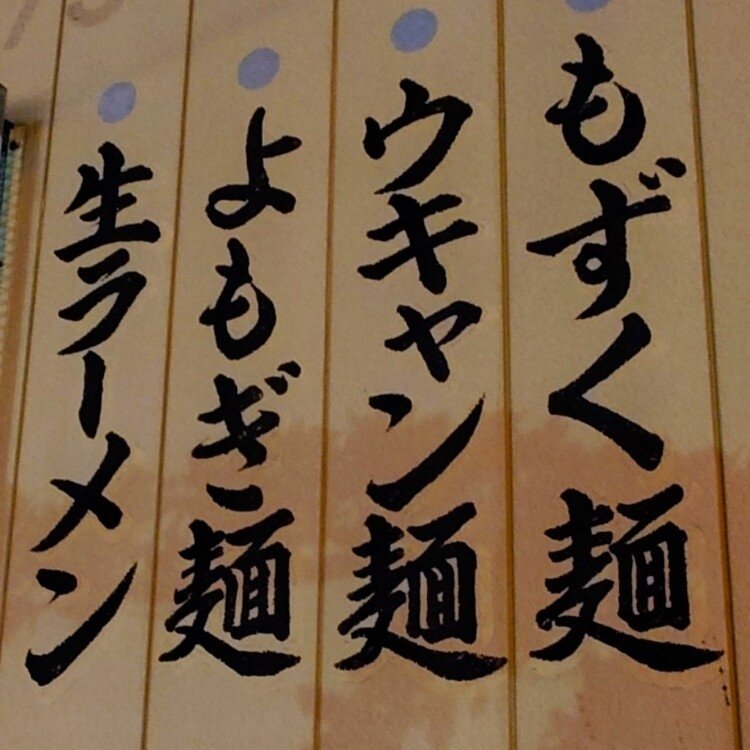 もずく麺
ウキャン麺
よもぎ麺
生ラーメン